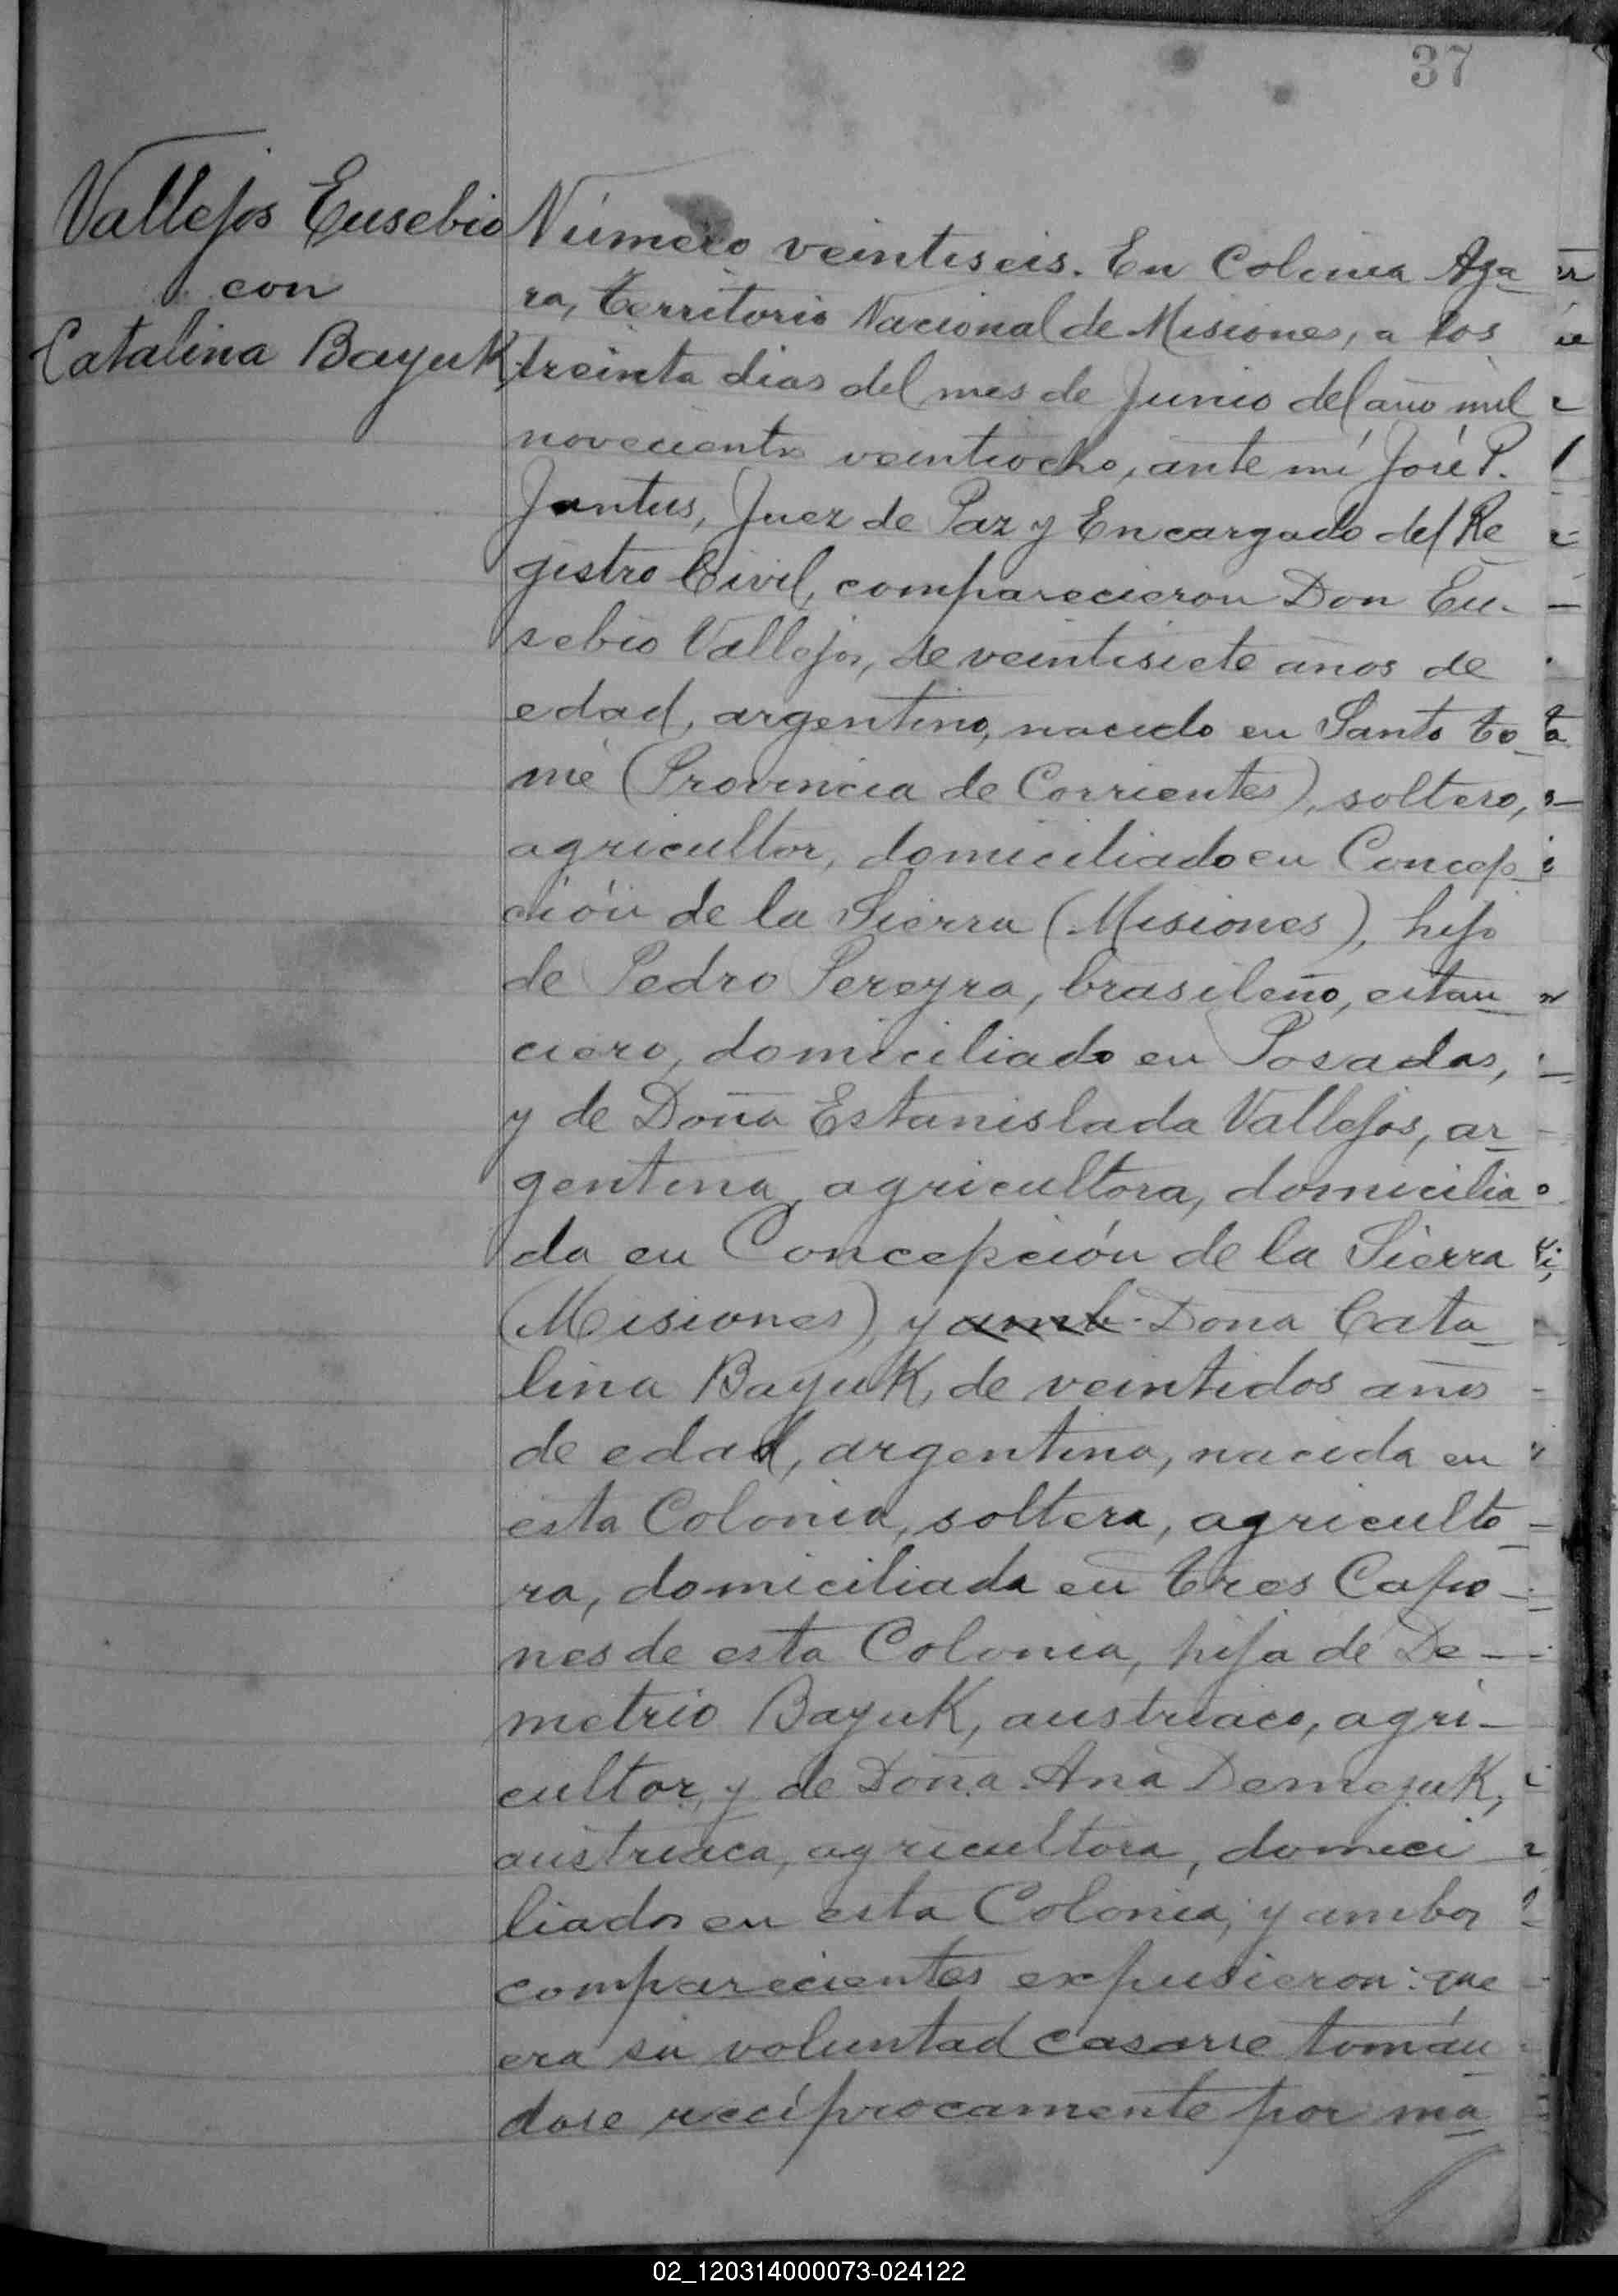 37
Vallejos Eusebio
con
Catalina Bayuk
Número veintiseis. En Colonia Aza
ra, territorio Nacional de Misiones, a los
treinta dias del mes de Junio del año mil
novecientos veintiocho, ante mí José P.
Jantus, Juez de Paz y Encargado del Re
gistro Civil, comparecieron Don Eu-
sebio Vallejos, de veintisiete años de
edad, argentino, nacido en Santo to
mé (Provincia de Corrientes), soltero,
agricultor, domiciliado en Concep
ción de la Sierra (Misiones), hijo
de Pedro Pereyra, brasileño, estan
ciero, domiciliado en Posadas,
y de Doña Estanislada Vallejos, ar
gentina, agricultora, domicilia
da en Concepción de la Sierra
(Misiones), y amb Doña Cata
lina Bayuk, de veintidos años
de edad, argentina, nacida en
esta Colonia, soltera, agriculto
ra, domiciliada en tres Capo
nes de esta Colonia, hija de De-
metrio Bayuk, austriaco, agri-
cultor, y de Doña Ana Demezuk,
austriaca, agricultora, domici
liados en esta Colonia; y ambos
comparecientes expusieron: que
era su voluntad casarse tomán
dose recíprocamente por ma
02_120314000073-024122